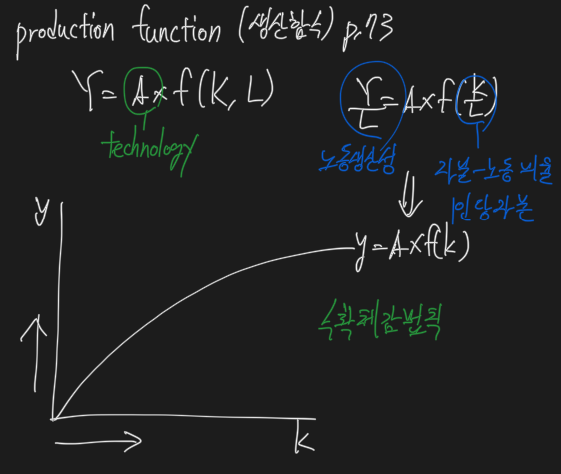 production function (생산함수) p.73
Y = A × f(K, L)
technology
Y/L = A × f(K/L)
노동생산성
자본-노동 비율
1인당 자본
y = A × f(k)
수확체감법칙
y
k